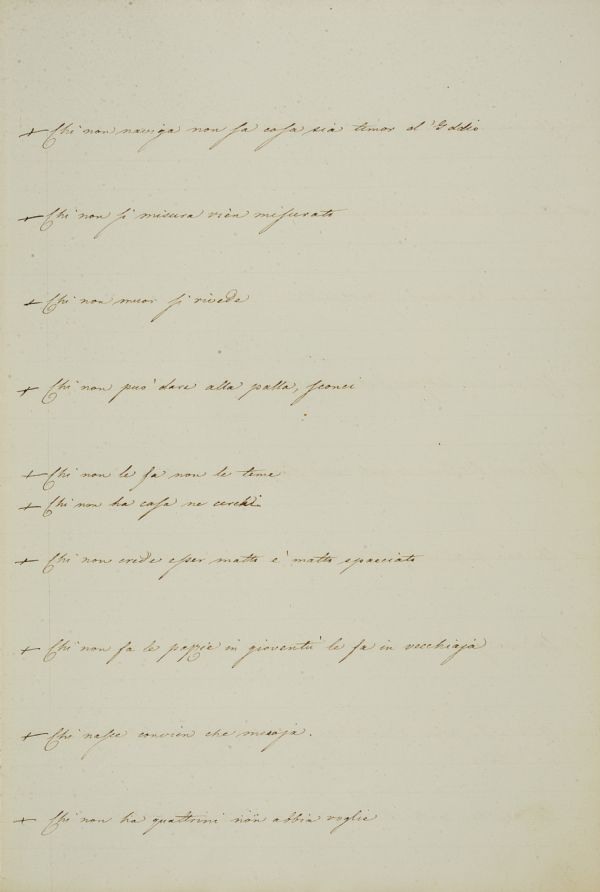 + Chi non naviga non sa cosa sia timor d'Iddio
+ Chi non si misura vien misurato
+ Chi non muor si rivede
+ Chi non può dare alla palla, sconci
+ Chi non le fa non le teme
+ Chi non ha casa ne cerchi.
+ Chi non crede esser matto è matto spacciato
+ Chi non fa le pazzie in gioventù le fa in vecchiaja
+ Chi nasce convien che muoja.
+ Chi non ha quattrini non abbia voglie